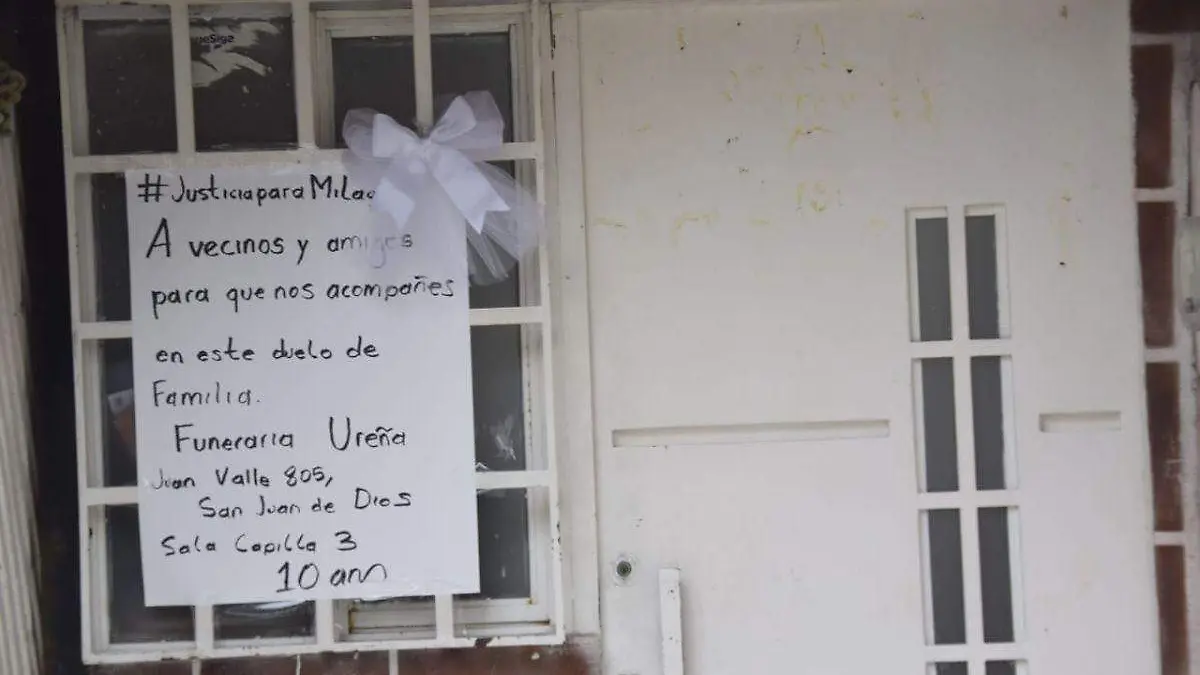 #JusticiaparaMila
A vecinos y amigos
para que nos acompañes
en este duelo de
Familia.
Funeraria Ureña
Juan Valle 805,
San Juan de Dios
Sala Capilla 3
10 am